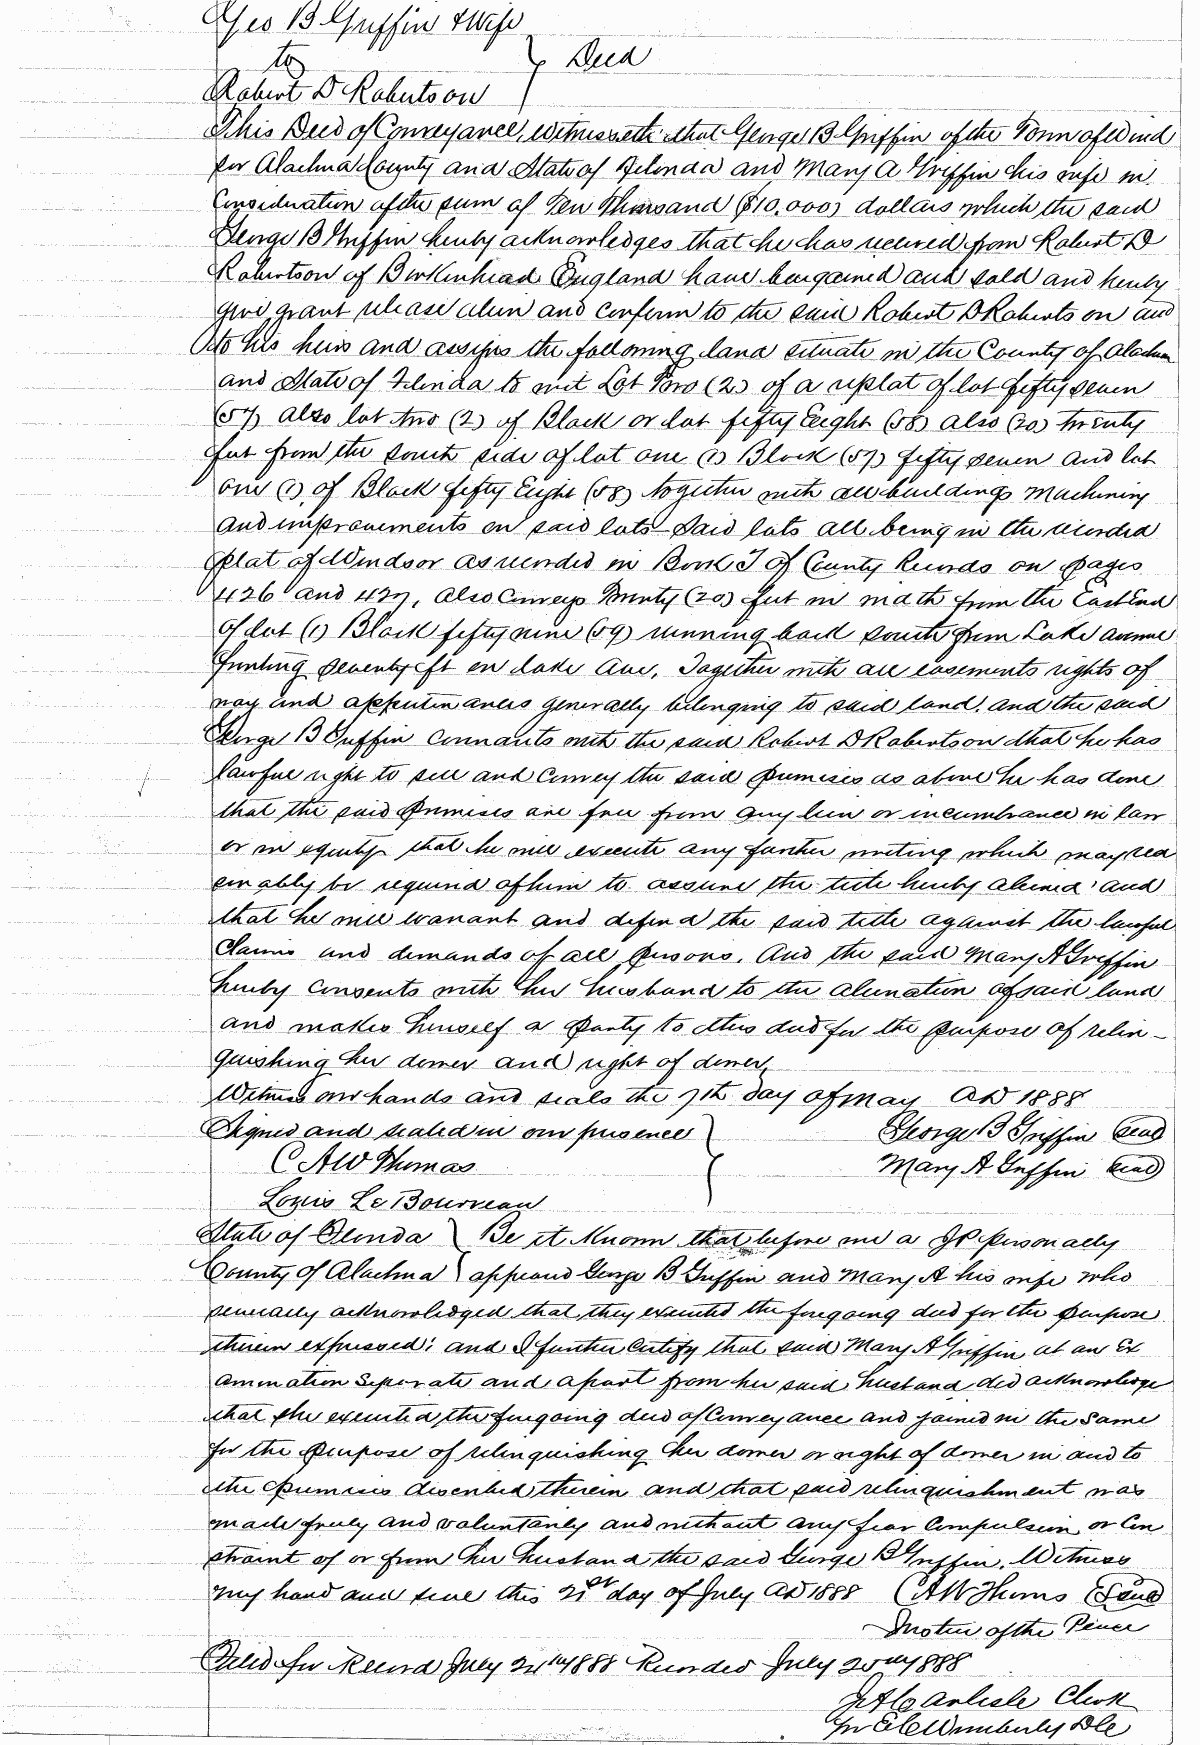 Geo B Griffin & Wife
to } Deed
Robert D Robertson
This Deed of Conveyance, witnesseth that George B Griffin of the Town of Wind
sor Alachua County and State of Florida and Mary A Griffin his wife in
Consideration of the sum of Ten Thousand ($10,000) dollars which the said
George B Griffin hereby acknowledges that he has received from Robert D
Robertson of Birkinhead England have bargained and sold and hereby
give grant release alien and confirm to the said Robert D Robertson and
to his heirs and assigns the following land situate in the County of Alachua
and State of Florida to wit Lot Two (2) of a replat of lot fifty seven
(57) also lot two (2) of Block or lot fifty Eight (58) also (20) twenty
feet from the south side of lot one (1) Block (57) fifty seven and lot
one (1) of Block fifty Eight (58) together with all buildings machinery
and improvements on said lots Said lots all being in the recorded
plat of Windsor as recorded in Book T of County Records on pages
426 and 427, also Conveys Twenty (20) feet in width from the East End
of lot (1) Block fifty nine (59) running back south from Lake avenue
fronting seventy ft on Lake Ave, Together with all easements rights of
way and appurtenances generally belonging to said land. and the said
George B Griffin covenants with the said Robert D Robertson that he has
lawful right to sell and Convey the said premises as above he has done
that the said premises are free from any lien or incumbrance in law
or in equity that he will execute any further writing which may rea
sonably be required of him to assure the title hereby aliened and
that he will warrant and defend the said title against the lawful
Claims and demands of all persons. And the said Mary A Griffin
hereby consents with her husband to the alienation of said land
and makes herself a party to this deed for the purpose of relin-
quishing her dower and right of dower,
Witness our hands and seals the 7th day of May AD 1888
Signed and sealed in our presence } George B Griffin (Seal)
C A W Thomas Mary A Griffin (Seal)
Louis Le Bourveau
State of Florida } Be it Known that before me a JP personally
County of Alachua } appeared George B Griffin and Mary A his wife who
severally acknowledged that they executed the foregoing deed for the purpose
therein expressed; and I further Certify that said Mary A Griffin at an Ex
amination separate and apart from her said husband did acknowledge
that she executed the foregoing deed of Conveyance and joined in the same
for the purpose of relinquishing her dower or right of dower in and to
the premises described therein and that said relinquishment was
made freely and voluntarily and without any fear Compulsion or Con
straint of or from her husband the said George B Griffin. Witness
my hand and seal this 21st day of July AD 1888 C A W Thomas (Seal)
Justice of the Peace
Filed for Record July 24th 1888 Recorded July 25th 1888
J A Carlisle Clerk
Per Wimberly D C